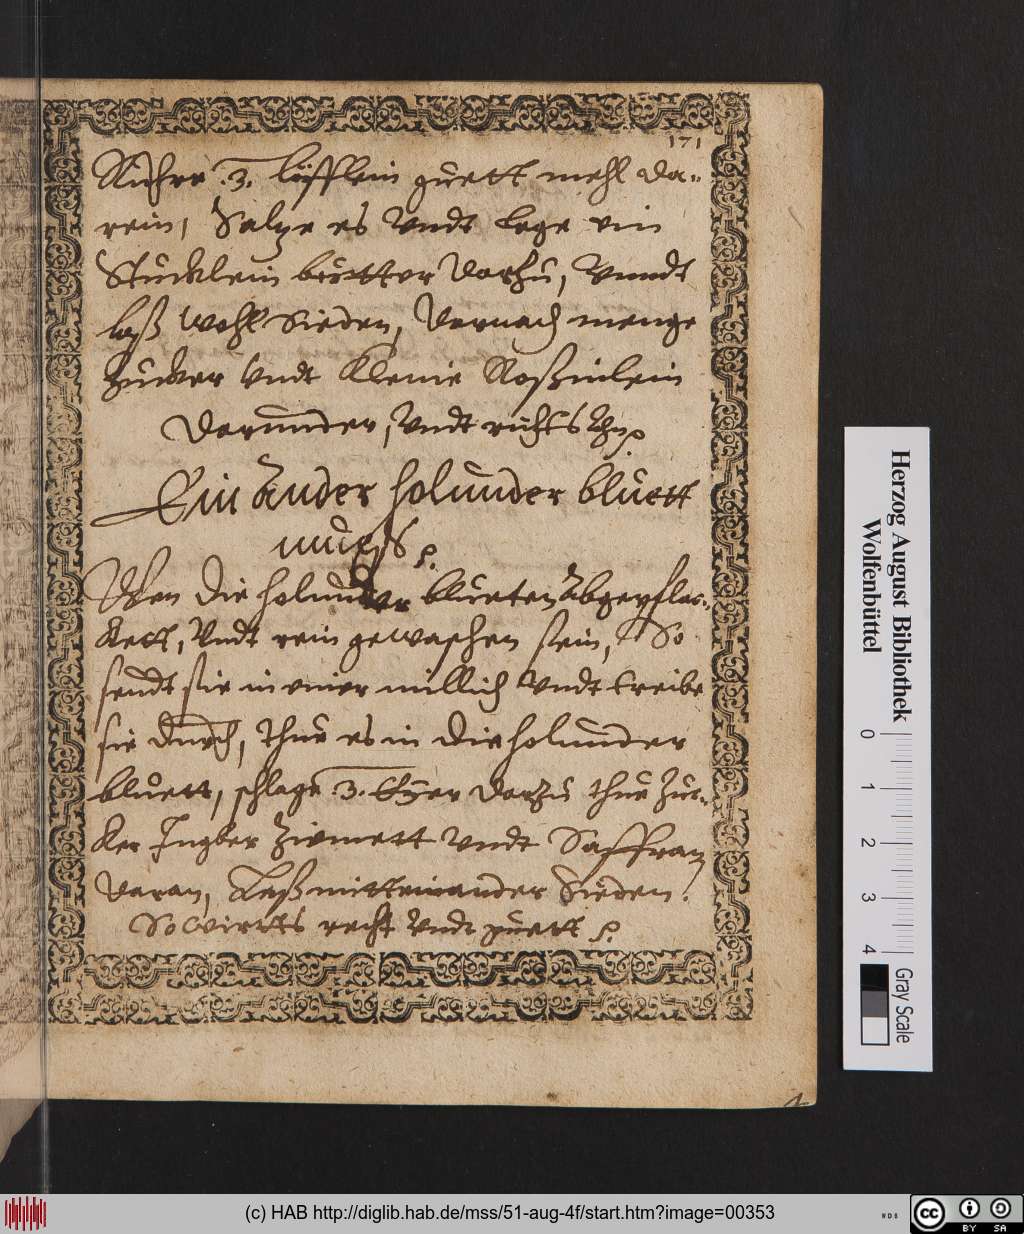 171
Rühre .3. löffelein guett mehl da-
rein, Saltze es Vndt Lege ein
Stücklein bütter Darzu, Vnndt
laß wohl Sieden, Darnach menge
Zucker Vndt Kleine Roßinlein
Darunder, Vndt richts An
Ein ander holunder bluett
mueß
Wen die holunder blueten abgepflec-
kett, Vndt rein gewaschen sein, So
seudt sie in einer millich Vndt treibe
sie durch, thue es in die holunder
bluett, schlage 3. Eyer Darzu thue Zuc-
ker Ingber Zimmett Vndt Saffran
Daran, Laß mitteinander Sieden.
So wirtts recht Vndt guett
Herzog August Bibliothek
Wolfenbüttel
0 1 2 3 4
Gray Scale
(c) HAB http://diglib.hab.de/mss/51-aug-4f/start.htm?image=00353
WDB
cc BY SA